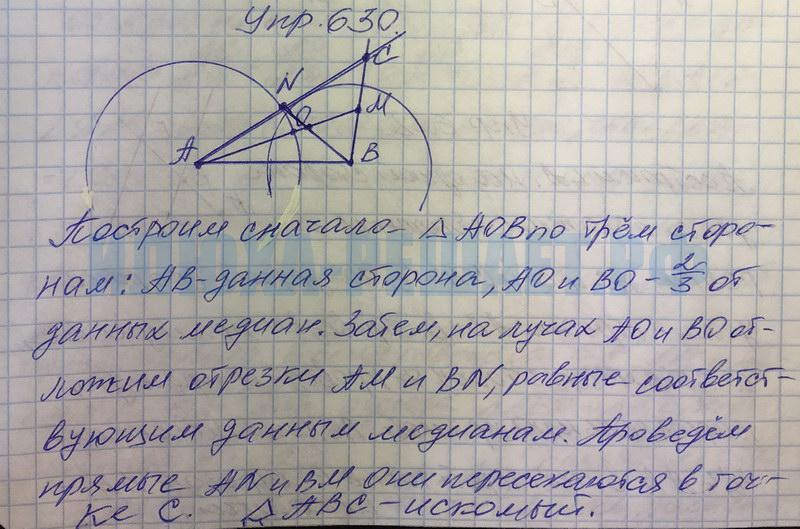 Упр. 630.
C
N
M
O
A
B
Построим сначала △ AOB по трём сторо-
нам: AB-данная сторона, AO и BO - 2/3 от
данных медиан. Затем, на лучах AO и BO от-
ложим отрезки AM и BN, равные соответст-
вующим данным медианам. Проведём
прямые AN и BM они пересекаются в точ-
ке C. △ ABC - искомый.